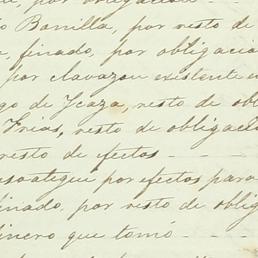 por obligacion
o Bonilla, por resto de
, finado, por obligacio
por clavazon existente e
go de Icaza, resto de ob
Frias, resto de obligacio
resto de efectos
asoategui por efectos para
finado, por resto de oblig
dinero que tomó